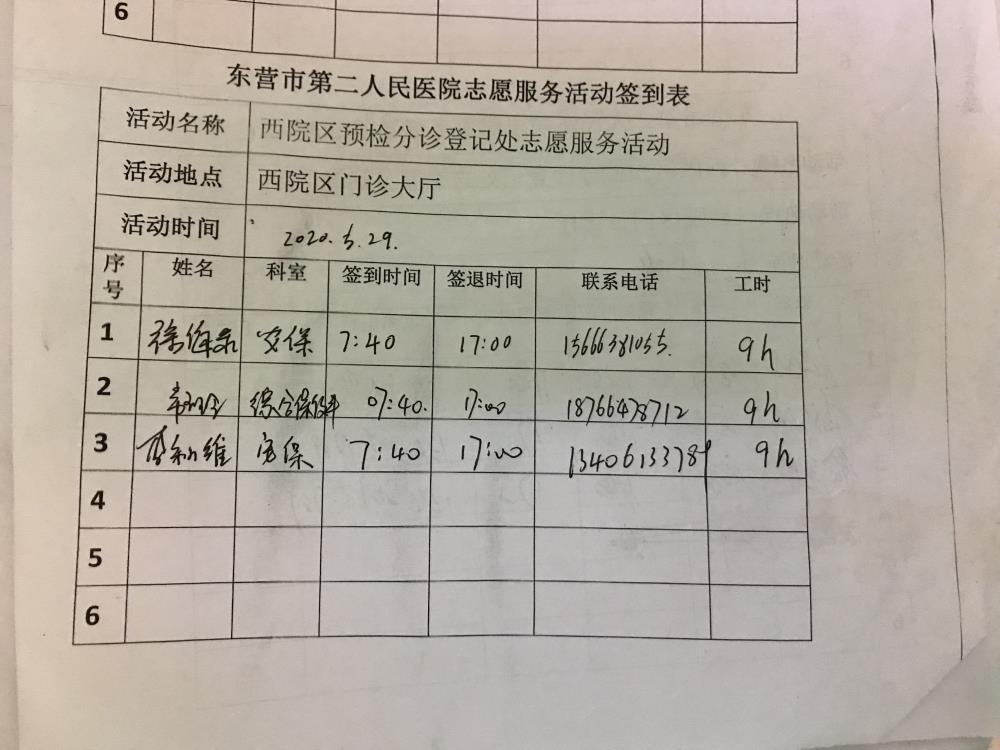 6
东营市第二人民医院志愿服务活动签到表
活动名称 西院区预检分诊登记处志愿服务活动
活动地点 西院区门诊大厅
活动时间 2020.5.29.
序号 姓名 科室 签到时间 签退时间 联系电话 工时
1 安保 7:40 17:00 15666381055. 9h
2 07:40. 17:00 18766478712 9h
3 安保 7:40 17:00 13406133789 9h
4
5
6